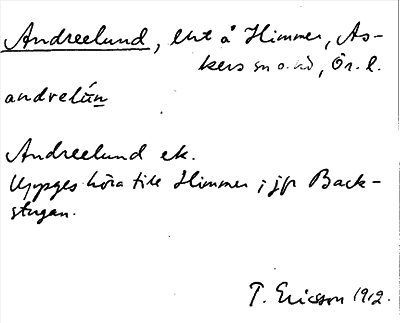 Andreelund, lht å Himmer, As-
kers sn o. hd, Ör. l.
andrelún
Andreelund ek.
Uppges höra till Himmer; jfr Back-
stugan.
T. Ericsson 1912.